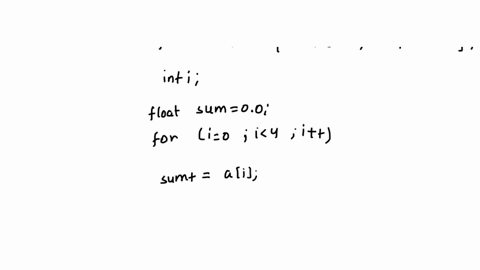 int i;
float sum=0.0;
for (i=0 ; i<4 ; i++)
sum+= a[i];